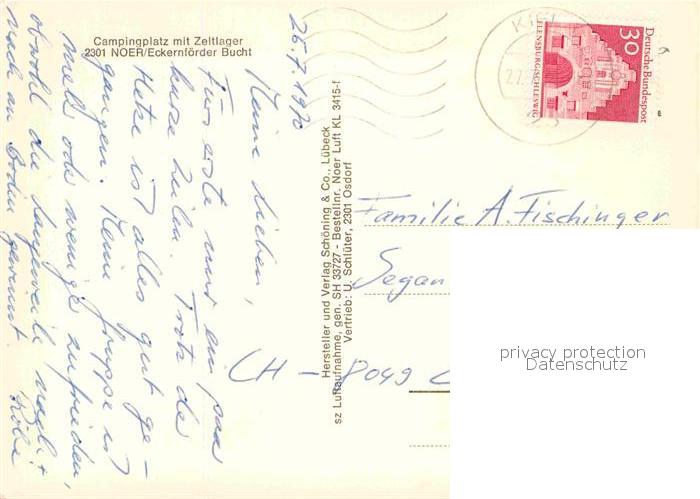 Campingplatz mit Zeltlager
2301 NOER/Eckernförder Bucht
26.7.1970
Meine Lieben,
Fürs erste nur ein paar
kurze Zeilen. Trotz der
Hetze ist alles gut ge-
gangen. Meine Gruppe ist
mehr oder weniger zufrieden,
obwohl die Langeweile
nach an Boden gewinnt.
Hersteller und Verlag Schöning & Co., Lübeck
sz Luftaufnahme, gen. SH 33727 - Bestellnr. Noer Luft KL 3415-f
Vertrieb: U. Schlüter, 2301 Osdorf
KIEL
30
Deutsche Bundespost
FLENSBURG/SCHLESWIG
Familie A. Fischinger
Segan
CH - 8049
privacy protection
Datenschutz